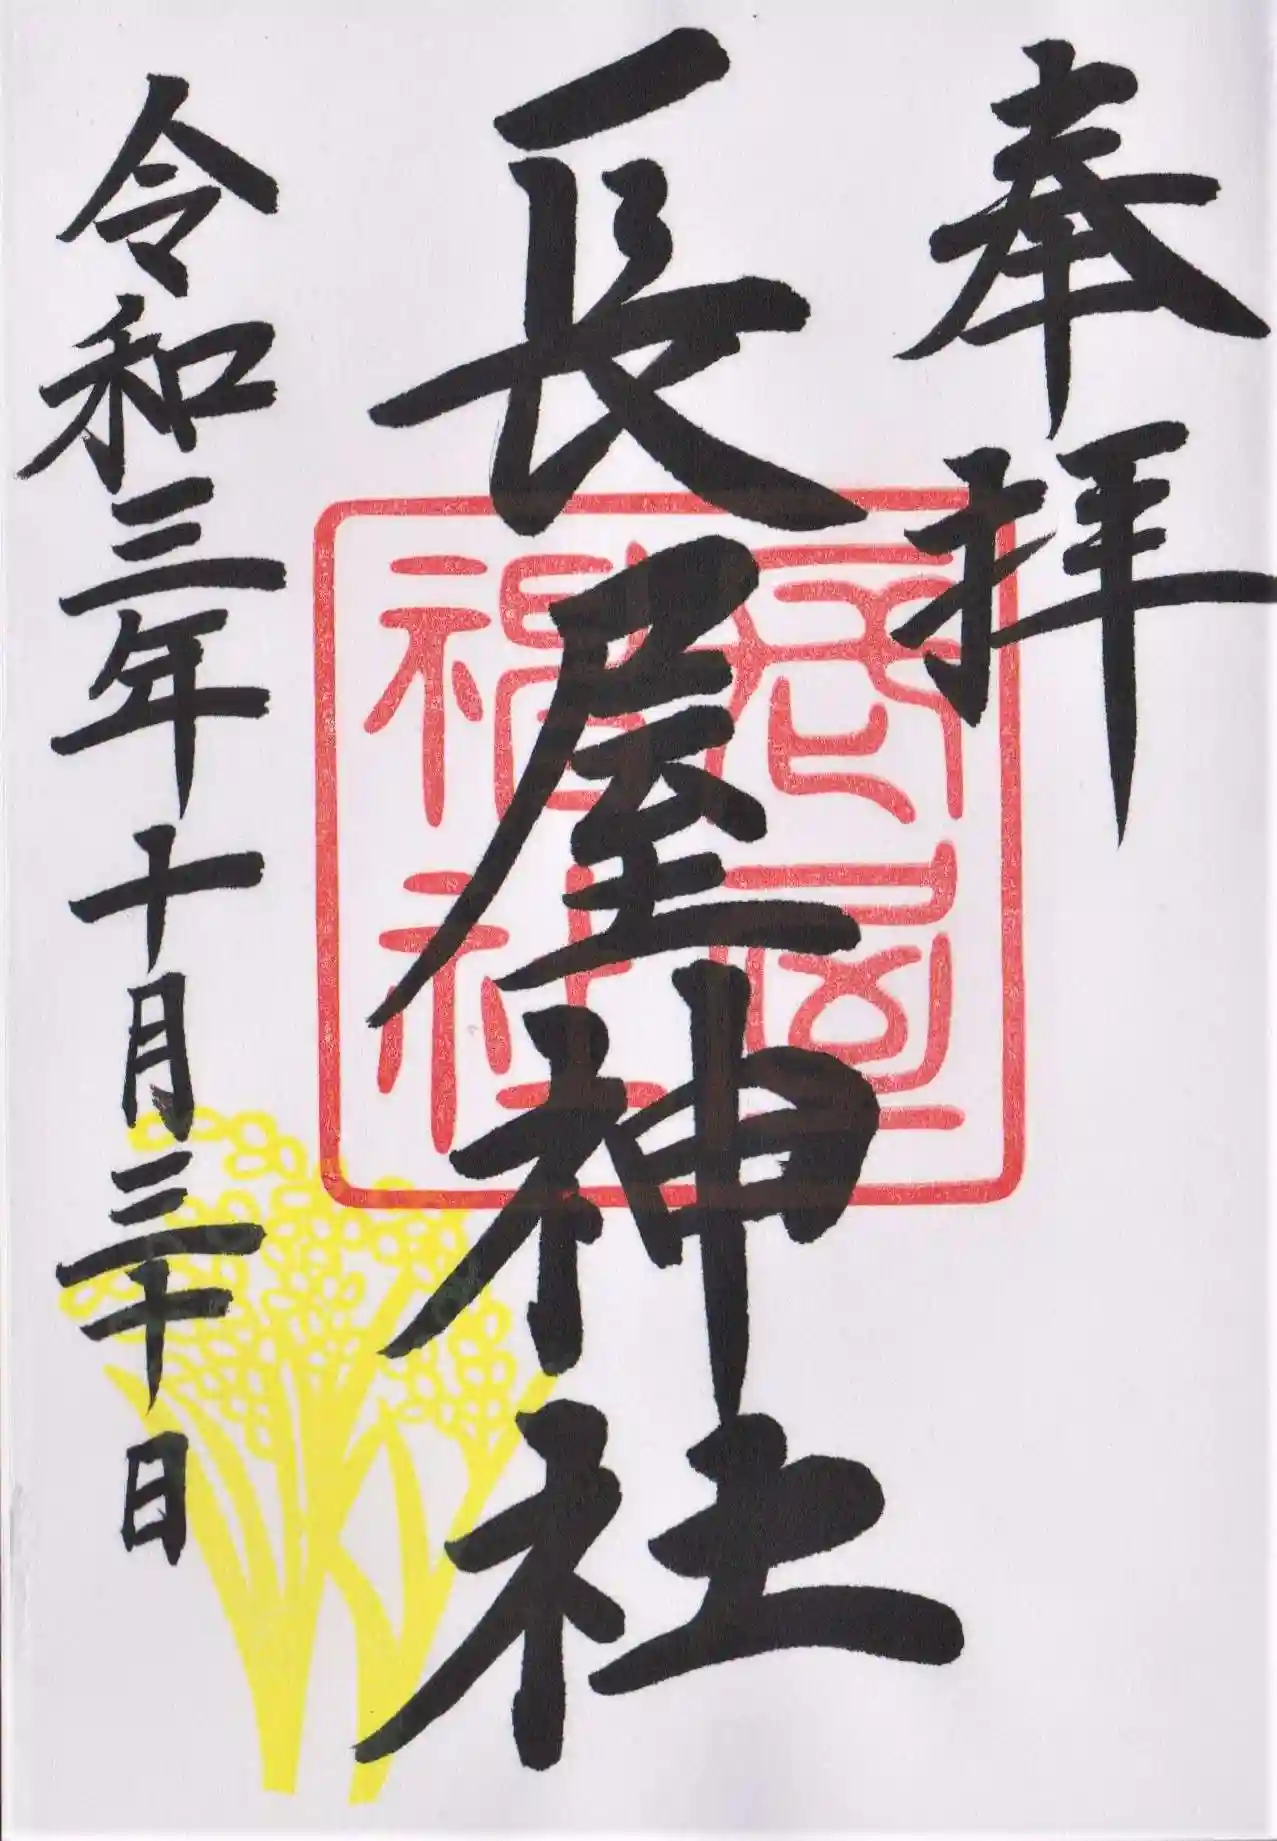 奉拝
長屋神社
長屋神社
令和三年十月三十日